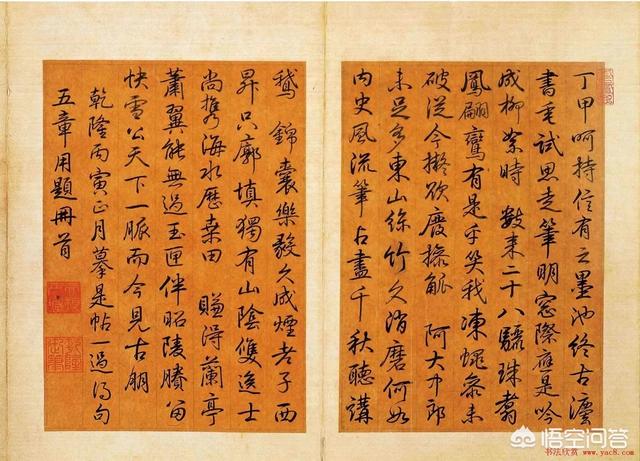 丁甲呵持信有之墨池終古灋
書垂試思走筆明窓際應是吟
成柳絮時 數來二十八驪珠翥
鳳翩鸞有是乎笑我凍蠅參未
破從今擬欲廢操觚 阿大中郎
未足多東山絲竹久消磨何如
内史風流筆占盡千秋聽講
鵝 錦囊樂毅久成煙老子西
昇只廓填獨有山陰雙逸士
尚攜海水歷桑田 賺得蘭亭
蕭翼能無過玉匣伴昭陵賸留
快雪公天下一脈而今見古朋
乾隆丙寅正月摹是帖一過得句
五章用題冊首
悟空问答
书法欣赏 www.yac8.com